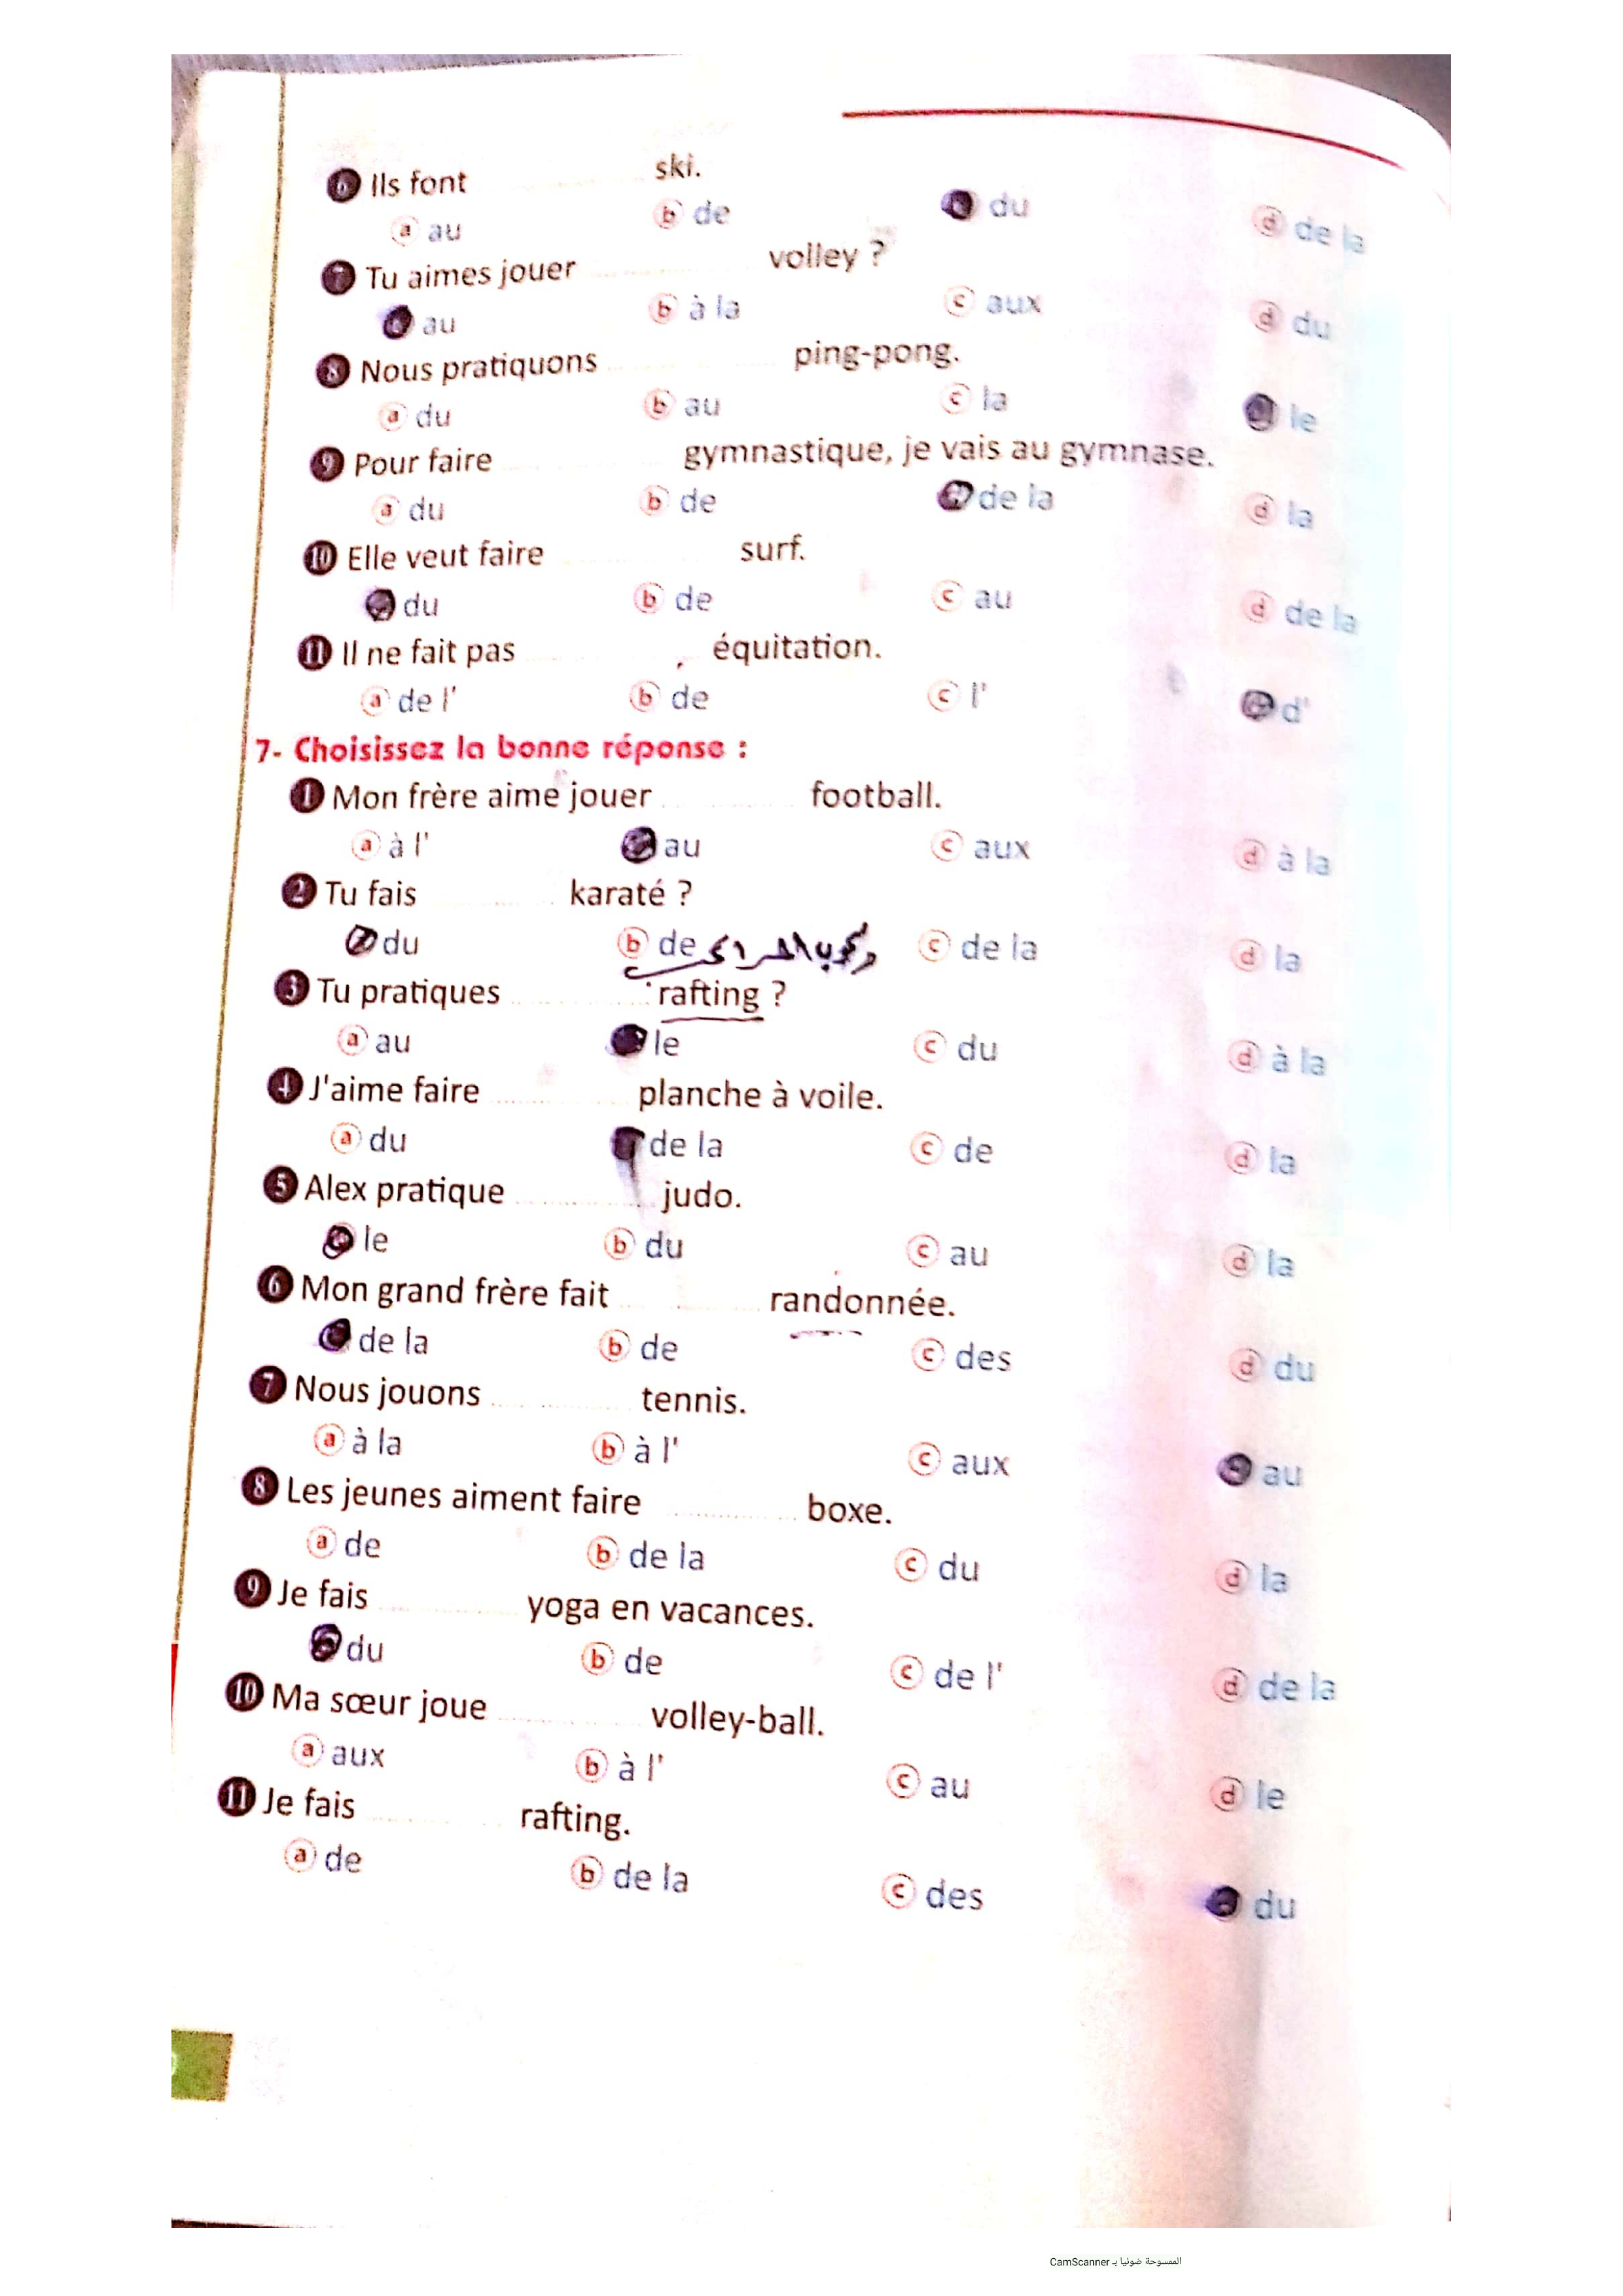 6 Ils font ............ ski.
a au b de du d de la
7 Tu aimes jouer ............ volley ?
au b à la c aux d du
8 Nous pratiquons ............ ping-pong.
a du b au c la le
9 Pour faire ............ gymnastique, je vais au gymnase.
a du b de de la d la
10 Elle veut faire ............ surf.
du b de c au d de la
11 Il ne fait pas ............ équitation.
a de l' b de c l' d'
7- Choisissez la bonne réponse :
1 Mon frère aime jouer ............ football.
a à l' au c aux d à la
2 Tu fais ............ karaté ?
du b de c de la d la
3 Tu pratiques ............ rafting ?
a au le c du d à la
4 J'aime faire ............ planche à voile.
a du de la c de d la
5 Alex pratique ............ judo.
le b du c au d la
6 Mon grand frère fait ............ randonnée.
de la b de c des d du
7 Nous jouons ............ tennis.
a à la b à l' c aux au
8 Les jeunes aiment faire ............ boxe.
a de b de la c du d la
9 Je fais ............ yoga en vacances.
du b de c de l' d de la
10 Ma sœur joue ............ volley-ball.
a aux b à l' c au d le
11 Je fais ............ rafting.
a de b de la c des du
الممسوحة ضوئيا بـ CamScanner